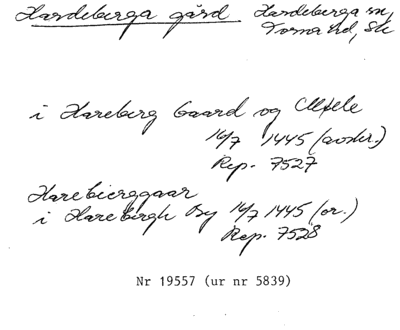 Hardeberga gård Hardeberga sn,
Torna hd, Sk
i Hareberg Gaard og Mele
16/7 1445 (avskr.)
Rep. 7527
Harebierggaar
i Harebirgh By 16/7 1445 (or.)
Rep. 7528
Nr 19557 (ur nr 5839)